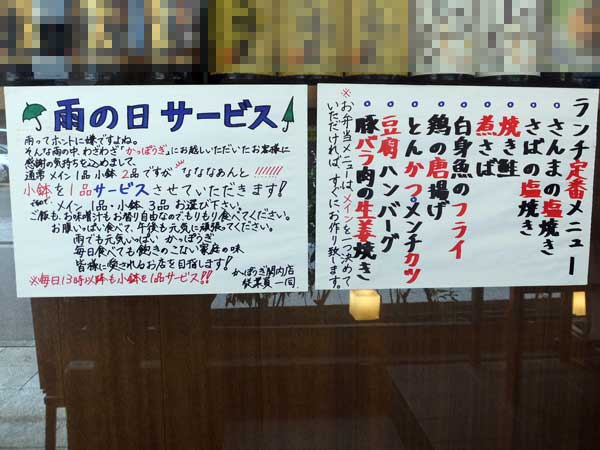 雨の日サービス
雨ってホントに嫌ですよね。
そんな雨の中、わざわざ"かっぽうぎ"にお越しいただいたお客様に
感謝の気持ちを込めまして、
通常 メイン1品 小鉢2品ですが なななあんと!!!!!!!
小鉢を1品サービスさせていただきます!
なので、メイン1品・小鉢3品お選び下さい。
ご飯も、お味噌汁もお替り自由なのでもりもり食べてください。
お腹いっぱい食べて、午後も元気に頑張ってください。
雨でも元気いっぱいかっぽうぎ
毎日食べても飽きのこない家庭の味
皆様に愛されるお店を目指します!
かっぽうぎ関内店
従業員一同.
※毎日13時以降も小鉢を1品サービス!!
ランチ定番メニュー
・さんまの塩焼き
・さばの塩焼き
・焼き鮭
・煮さば
・白身魚のフライ
・鶏の唐揚げ
・とんかつ・メンチカツ
・豆腐ハンバーグ
・豚バラ肉の生姜焼き
※お弁当メニューは、メインを一つ決めて
いただければ、すぐにお作り致します。